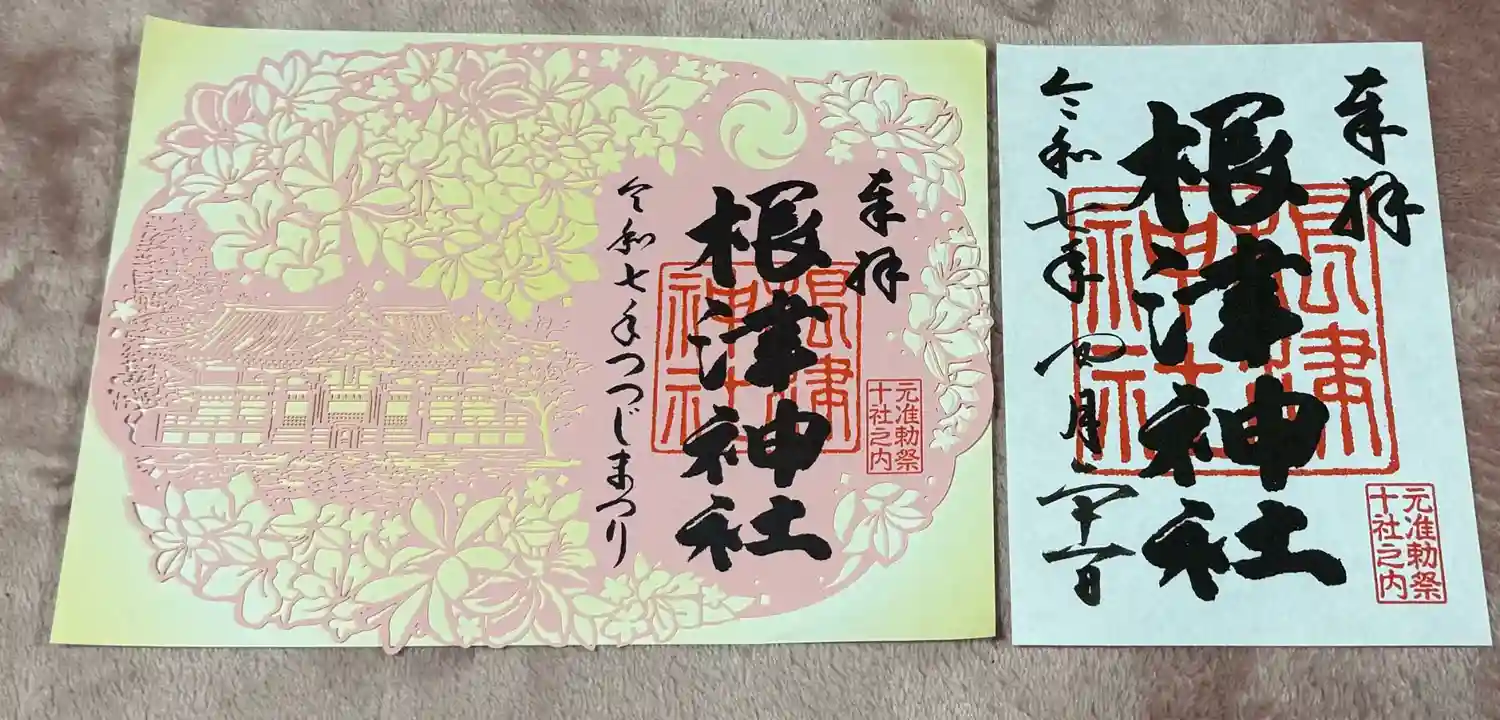 奉拝
根津神社
根津神社
元准勅祭
十社之内
令和七年つつじまつり
奉拝
根津神社
根津神社
元准勅祭
十社之内
令和七年四月二十一日